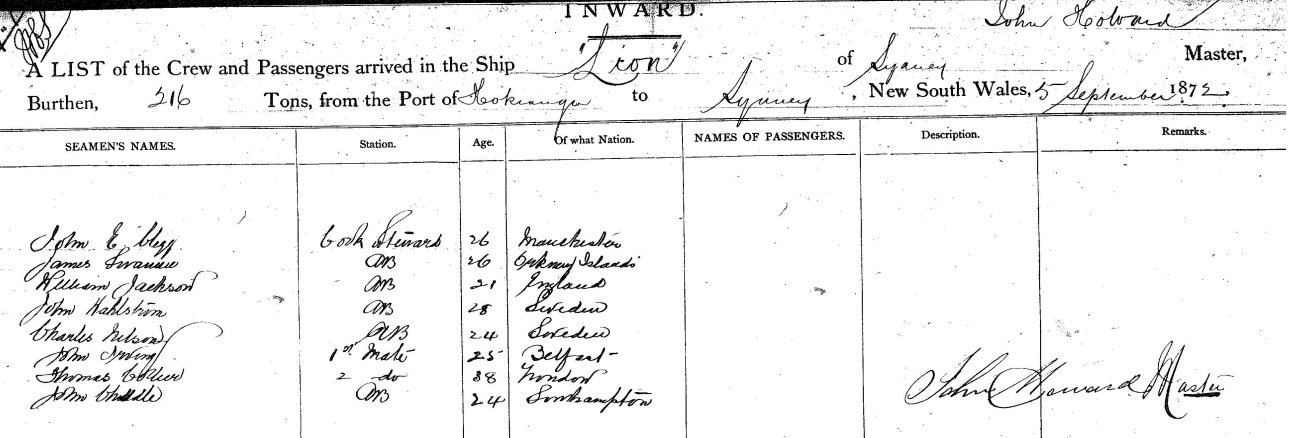 INWARD.
John Howard
A LIST of the Crew and Passengers arrived in the Ship "Lion" of Sydney Master,
Burthen, 216 Tons, from the Port of Hokianga to Sydney, New South Wales, 5 September 1872.
SEAMEN'S NAMES. Station. Age. Of what Nation. NAMES OF PASSENGERS. Description. Remarks.
John E Clegg Cook Steward 26 Manchester
James AB 26 Orkney Islands
William Jackson AB 21 England
John Wahlström AB 28 Sweden
Charles Nilson AB 24 Sweden
John Irving 1st Mate 25 Belfast
Thomas Collier 2 do 38 London
John AB 24 Southampton
John Howard Master